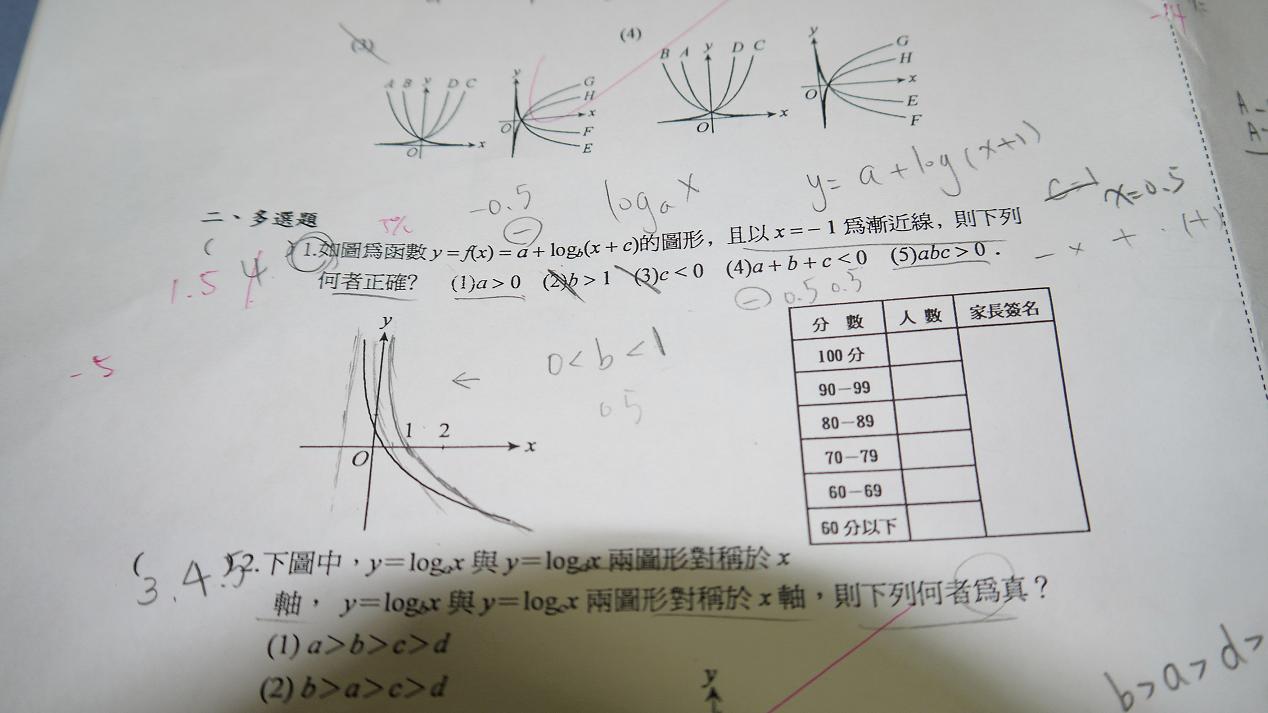 (3)
(4)
A B y D C
x
O
y
G
H
x
O
F
E
B A y D C
x
O
y
G
H
x
O
E
F
-14
y = a + log(x+1)
-0.5
log a x
c=1
x=0.5
二、多選題
5%
( ) 1.如圖為函數 y=f(x)=a+log_b(x+c)的圖形，且以 x=-1 為漸近線，則下列
何者正確? (1)a>0 (2)b>1 (3)c<0 (4)a+b+c<0 (5)abc>0．
1.5 4
- × + . (+)
(-) 0.5 0.5
-5
y
1 2
x
O
←
0<b<1
0.5
分 數 人 數 家長簽名
100 分
90－99
80－89
70－79
60－69
60 分以下
( ) 2.下圖中，y=log_a x 與 y=log_d x 兩圖形對稱於 x
3.4.5
軸， y=log_b x 與 y=log_c x 兩圖形對稱於 x 軸，則下列何者為真？
(1) a>b>c>d
(2) b>a>c>d
y
b>a>d>